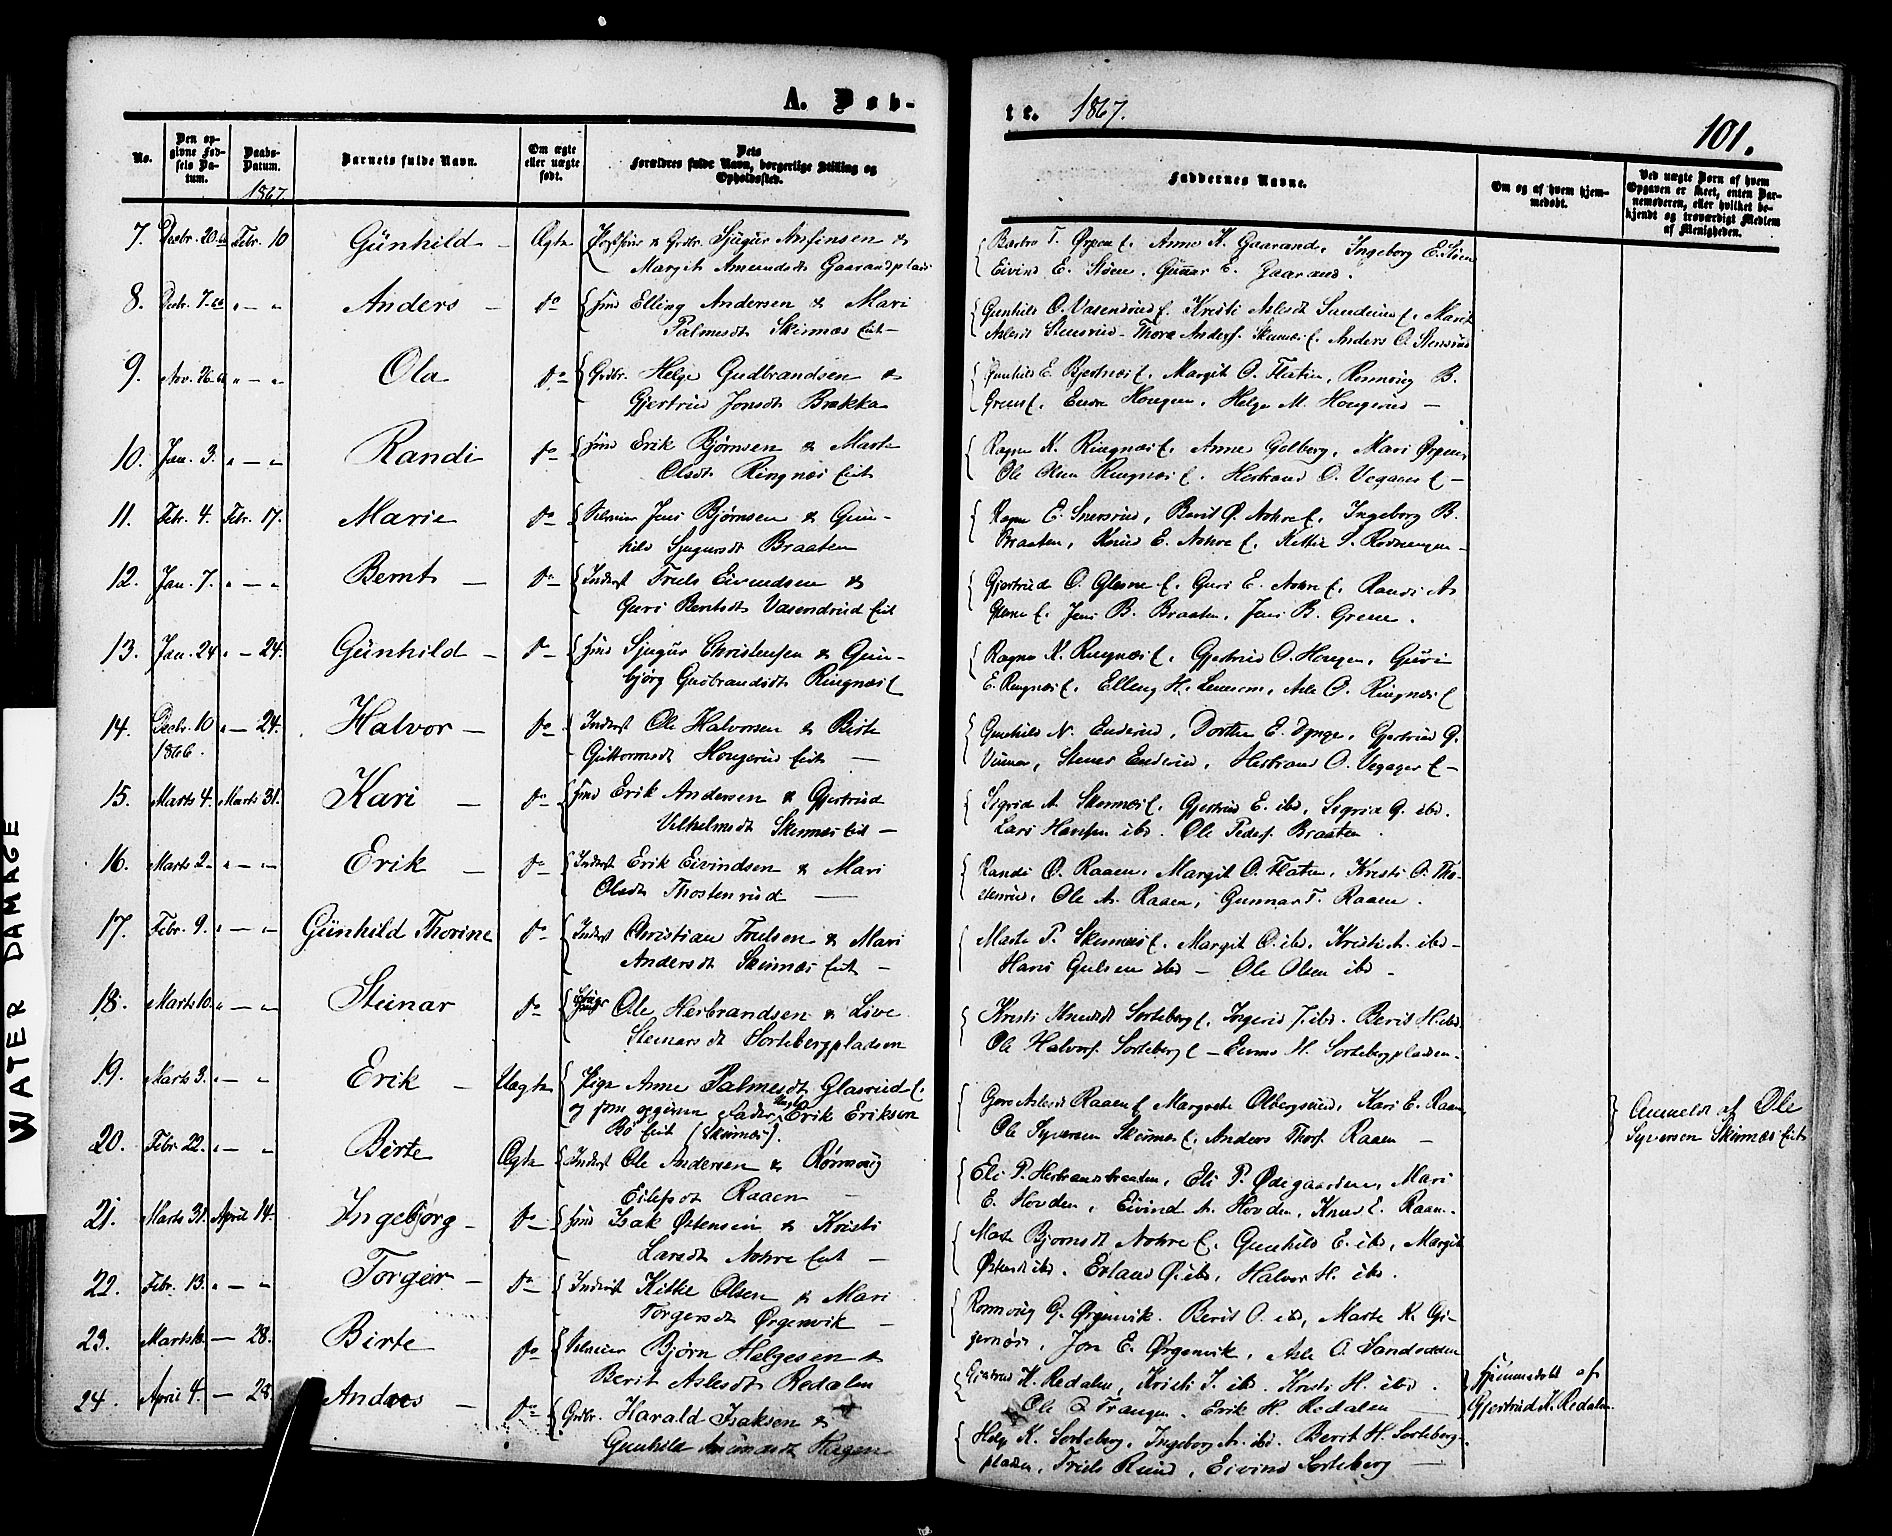 A. Døb-
ter. 1867.
101.
No.
Den op-
givne Fød-
sels Da-
tum.
Daabs-
Datum.
1867.
Barnets fulde Navn.
Om ægte
eller uægte
født.
Dets
Forældres fulde Navn, borgerlige Stilling og
Opholdssted.
Faddernes Navne.
Om og af hvem hjem-
medøbt.
Ved uægte Børn af hvem
Opgaven er skeet, enten Bar-
nemoderen, eller hvilket be-
kjendt og troværdigt Medlem
af Menigheden.
7. Decbr. 20 66 Febr. 10 Gunhild - Ægte Grdbr. Sjugur Anfinsen &
Margit Amundsdt Gaarandpladsen
Barbro T. Ørpen f. Anne K. Gaarand, Ingeborg E. Støen
Eivind E. Støen, Gunnar E. Gaarand.
8. Decbr. 7 66 " - " Anders - do Hmd Elling Andersen & Mari
Palmesdt Skinnes Eit -
Gunhild O. Vasendrud f. Kristi Aslesdt Sanderud f. Marit
Aslesdt Stensrud - Thora Andersd. Skinnes f. Anders O. Stensrud
9. Nov. 26 66 " - " Ola do Grdbr. Helge Gudbrandsen &
Gjertrud Jonsdt Brekka
Gunhild E. Bjertnes f. Margit O. Flaten, Rønnoug B.
Green f. Endre Hougen, Helge M. Hougerud -
10. Jan. 3. " - " Randi do Hmd Erik Bjørnsen & Marte
Olsdt Ringnes Eit
Ragne K. Ringnes f. Anne Golberg, Mari Ørpen,
Ole Olsen Ringnes f. Herbrand O. Vegaren f -
11. Febr. 4. Febr. 17. Marie do Selveier Jens Bjørnsen & Gun-
hild Sjugursdt Braaten
Ragne E. Snersrud, Berit Ø. Nohre f. Ingeborg B.
Braaten, Knud E. Nohre f. Kittil S. Rodningen -
12. Jan. 7. " - " Bernt - do Inderst Truls Eivindsen &
Guri Berntsdt Vasendrud Eit
Gjertrud O. Glesne f. Guri E. Nohre f. Randi A.
Glesne f. Jens B. Braaten, Jens B. Green.
13. Jan. 24 " - 24. Gunhild - do Hmd Sjugur Christensen & Gun-
bjørg Gudbrandsdt Ringnes f
Ragne K. Ringnes f. Gjertrud O. Hougen, Guri
E. Ringnes f. Elling H. Leuesen, Asle O. Ringnes f
14. Decbr. 10 " - 24. Halvor - do Inderst Ole Halvorsen & Birte
1866. Guttormsdt Hougerud Eit -
Gunhild N. Enderud, Dorthe E. Dynge, Gjertrud G.
Vinnes, Stener Enderud, Herbrand O. Vegager f -
15. Marts 4. Marts 31. Kari - do Hmd Erik Andersen & Gjertrud
Vilhelmsdt Skinnes Eit -
Sigrid A. Skinnes f. Gjertrud E. ibd. Sigrid G. ibd.
Lars Hansen ibd. Ole Peders. Braaten.
16. Marts 2. " - " Erik - do Inderst Erik Eivindsen & Mari
Olsdt Thostenrud -
Randi O. Raaen, Margit O. Flaten, Kristi O. Tho-
stenrud, Ole A. Raaen, Gunnar T. Raaen.
17. Febr. 9. " - " Gunhild Thorine do Inderst Christian Trulsen & Mari
Andersdt Skinnes Eit -
Marte P. Skinnes f. Margit O. ibd. Kristi A. ibd -
Hans Gulsen ibd - Ole Olsen ibd -
18. Marts 10. " - " Steinar do Ole Herbrandsen & Live
Steinarsdt Sortebergpladsen
Kristi Knudsdt Sorteberg f. Ingerid J. ibd. Berit H. ibd
Ole Halvors. Sorteberg f - Exxx
19. Marts 3. " - " Erik - Uægte Pige Anne Palmesdt Glasrud f.
og som opgiven Fader Ungk. Erik Eriksen
Bö Eit (Skinnes).
Goro Aslesd Raaen f. Margrete Olbergseiet, Kari E. Raaen,
Ole Syversen Skinnes f. Anders Thors. Raaen -
Anmeldt af Ole
Syversen Skinnes Eit
20. Febr. 22. " - " Birte Ægte Inderst Ole Andersen & Rønnoug
Eilefsdt Raaen -
Eli P. Herbrandsbraaten, Eli P. Ødegaarden, Mari
E. Hovden, Eivind A. Hovden, Knud E. Raaen.
21. Marts 31. April 14. Ingebjørg - do Hmd Isak Østensen & Kristi
Larsdt Nohre Eit -
Marte Bjørnsdt Nohre f. Gunhild E. ibd, Margit
Østensdt ibd. Erland Ø. ibd, Halvor H. ibd.
22. Febr. 13. " - " Torgeir - do Inderst Kittil Olsen & Mari
Torgersdt Ørgenvik -
Rønnoug G. Ørgenvik. Berit O. ibd, Marte K. Gi-
gernøs, Jon E. Ørgenvik, Asle O. Sandodden
23. Marts 10. - 28. Birte do Selveier Bjørn Helgesen &
Berit Aslesdt Redalen
Gjertrud K. Redalen, Kristi J. ibd. Kristi H. ibd.
Ole O Trangen. Erik H. Redalen -
Hjemmedøbt af
Gjertrud K. Redalen.
24. April 4. - 28 Andres - do Grdbr. Harald Isaksen &
Gunhild Amundsdt Hagen
Helge K. Sorteberg, Ingeborg A. ibd. Berit H. Sorteberg-
pladsen, Truls Rund, Eivind Sorteberg -
WATER DAMAGE